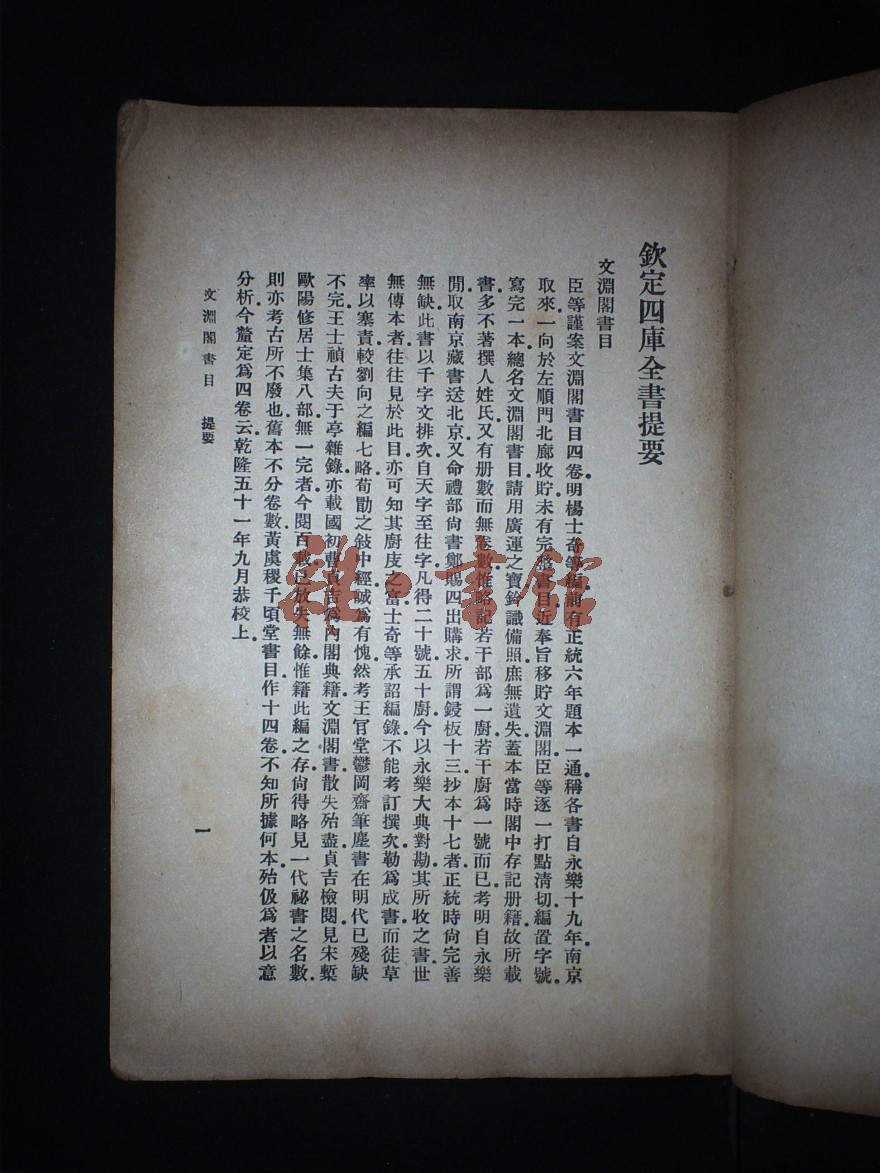 欽定四庫全書提要
文淵閣書目
臣等謹案文淵閣書目四卷明楊士奇等編前有正統六年題本一通稱各書自永樂十九年南京
取來一向於左順門北廊收貯未有完整書目近奉旨移貯文淵閣臣等逐一打點清切編置字號
寫完一本總名文淵閣書目請用廣運之寶鈐識備照庶無遺失蓋本當時閣中存記册籍故所載
書多不著撰人姓氏又有册數而無卷數惟略記若干部爲一廚若干廚爲一號而已考明自永樂
閒取南京藏書送北京又命禮部尙書鄭賜四出購求所謂鋟板十三抄本十七者正統時尙完善
無缺此書以千字文排次自天字至往字凡得二十號五十廚今以永樂大典對勘其所收之書世
無傳本者往往見於此目亦可知其廚庋之富士奇等承詔編錄不能考訂撰次勒爲成書而徒草
率以塞責較劉向之編七略荀勖之敍中經誠爲有愧然考王肎堂鬱岡齋筆麈書在明代已殘缺
不完王士禎古夫于亭雜錄亦載國初曹貞吉爲內閣典籍文淵閣書散失殆盡貞吉檢閱見宋槧
歐陽修居士集八部無一完者今閱百載已放失無餘惟籍此編之存尙得略見一代祕書之名數
則亦考古所不廢也舊本不分卷數黃虞稷千頃堂書目作十四卷不知所據何本殆伋爲者以意
分析今釐定爲四卷云乾隆五十一年九月恭校上
文淵閣書目 提要
一